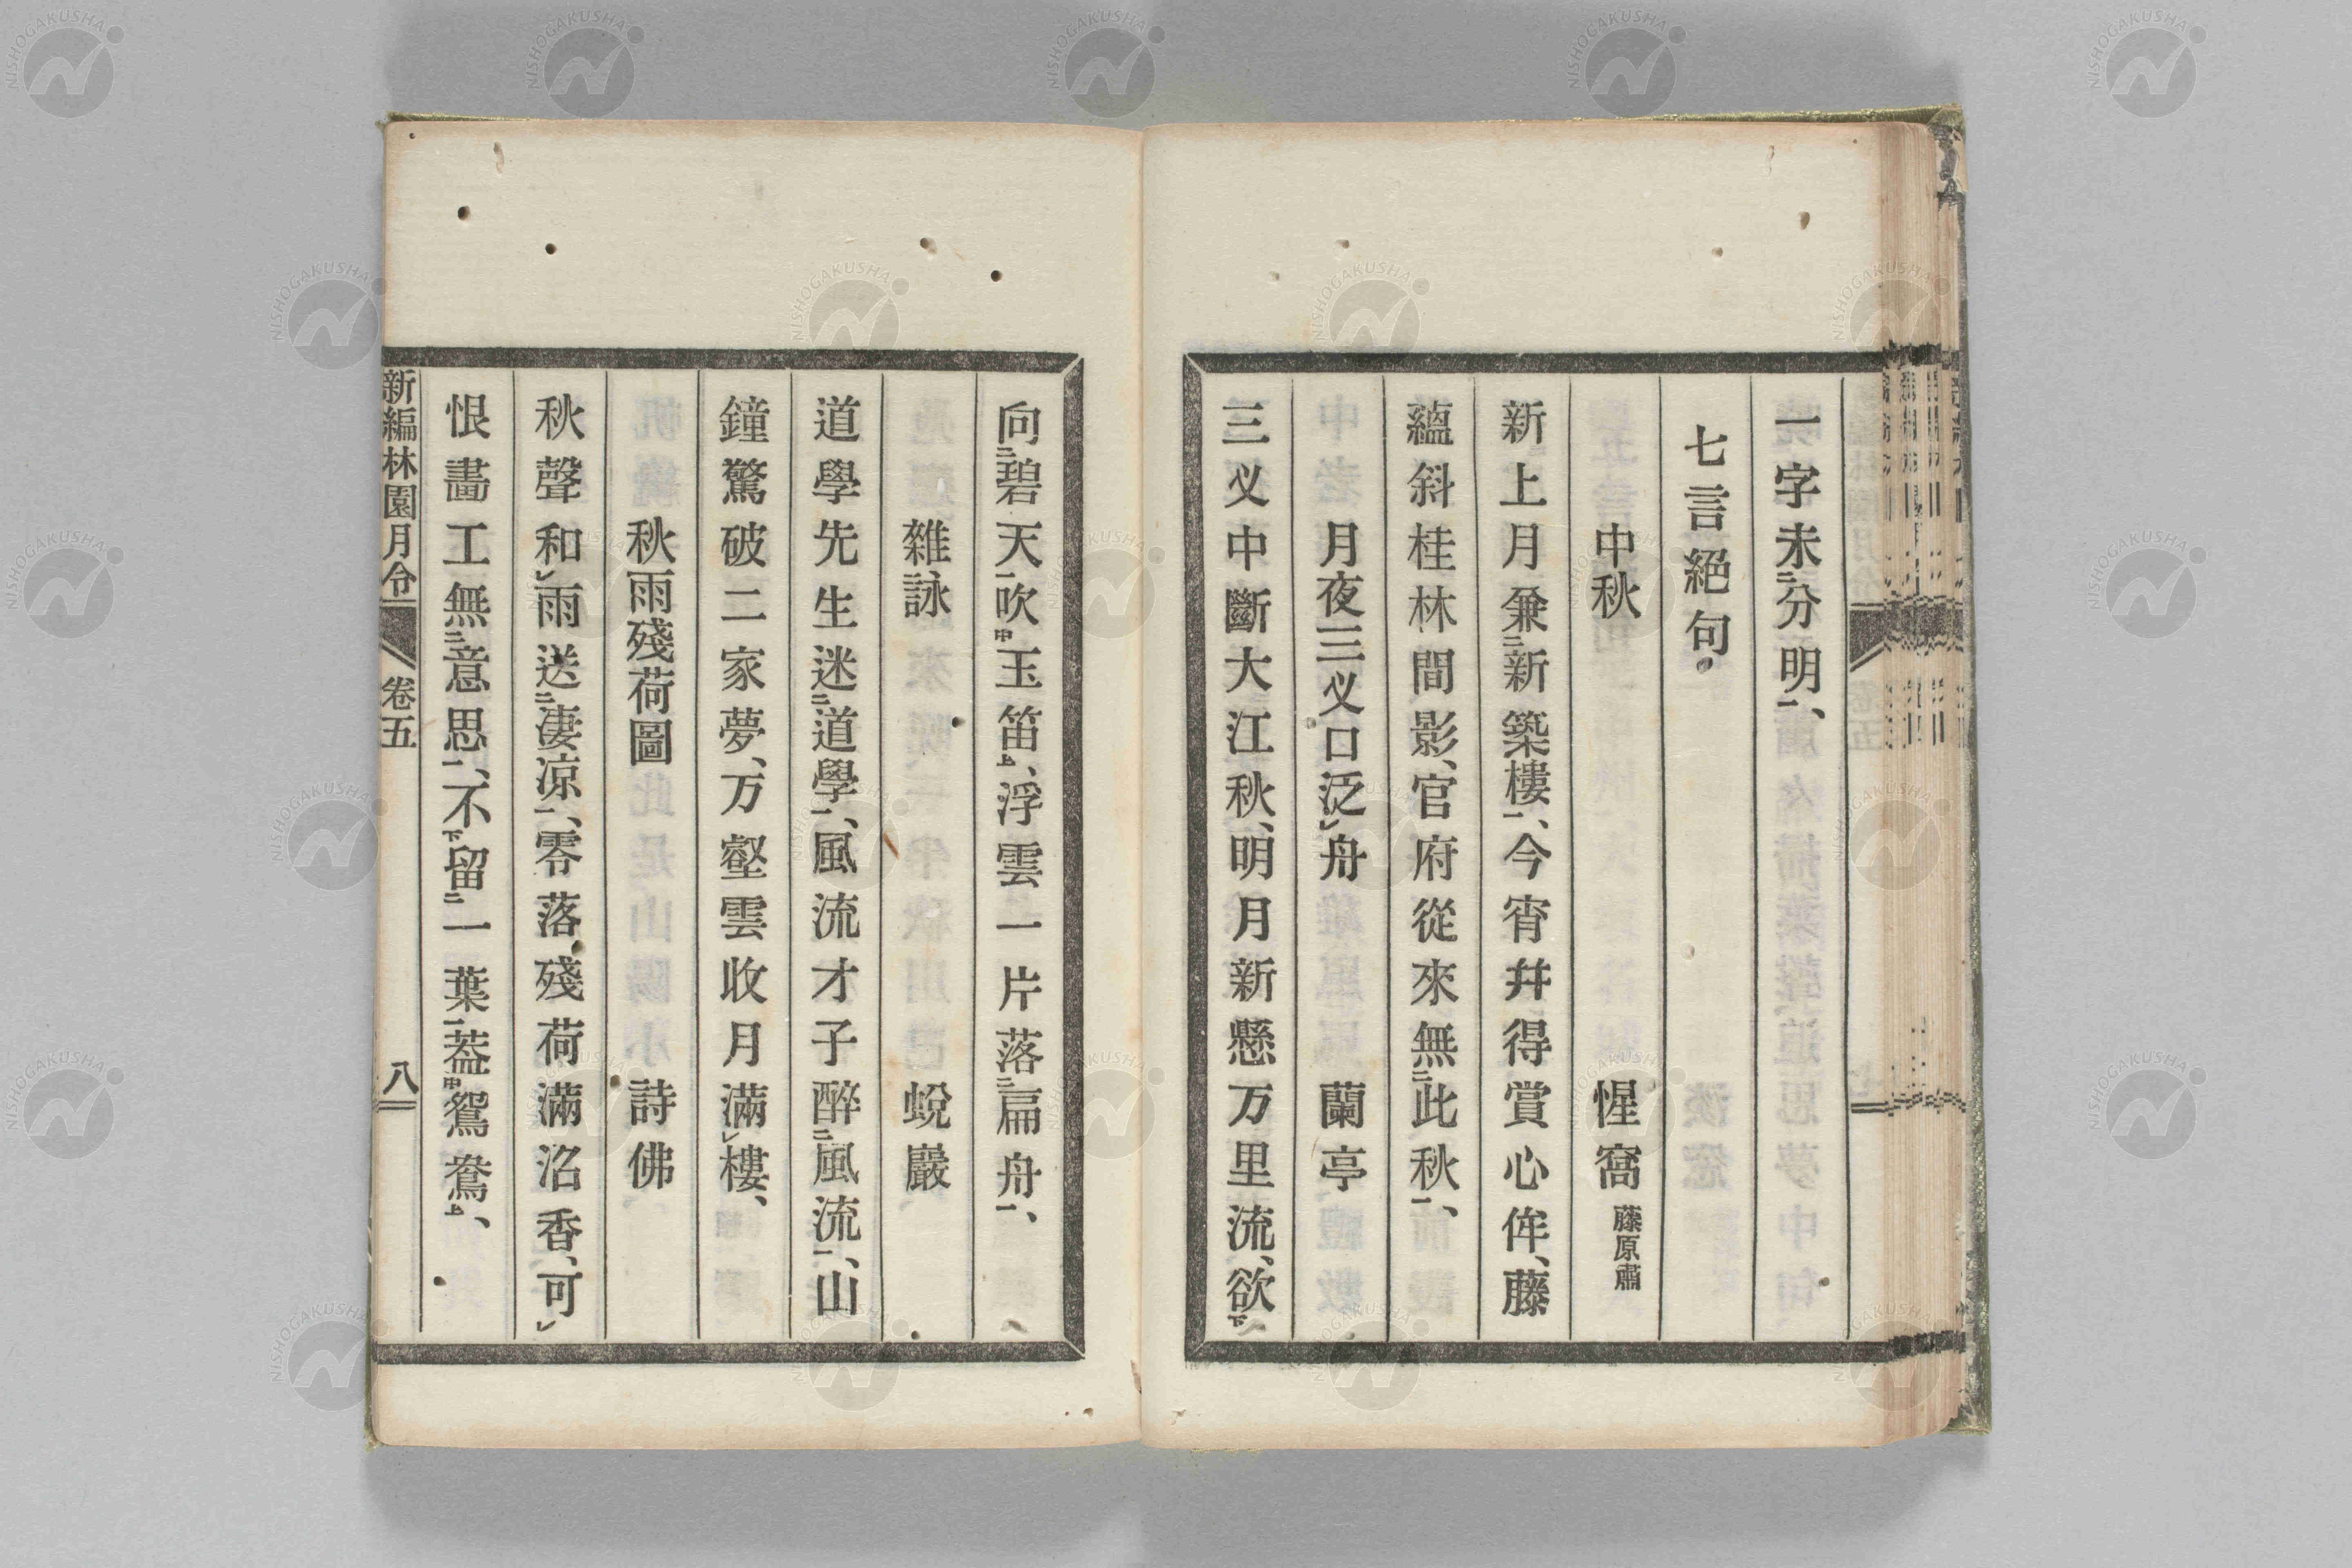 一字未㆓分明㆒、
七言絕句。
中秋　惺窩 藤原肅
新上月兼㆓新築樓㆒、今宵幷得賞心侔、藤
蘊斜桂林間影、官府從來無㆓此秋㆒、
月夜三义口泛㆑舟　蘭亭
三义中斷大江秋、明月新懸万里流、欲㆘
向㆓碧天㆒吹㆗玉笛㆖、浮雲一片落㆓扁舟㆒、
雜詠　蛻巖
道學先生迷㆓道學㆒、風流才子醉㆓風流㆒、山
鐘驚破二家夢、万壑雲收月滿㆑樓、
秋雨殘荷圖　詩佛
秋聲和㆑雨送㆓凄凉㆒、零落殘荷滿沼香、可㆑
恨畵工無㆓意思㆒、不㆘留㆓一葉㆒葢㆗鴛鴦㆖、
新編林園月令　卷五　八
NISHOGAKUSHA